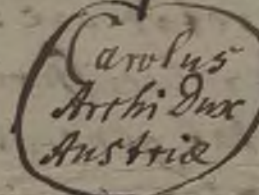 Carolus
Archi Dux
Austriæ